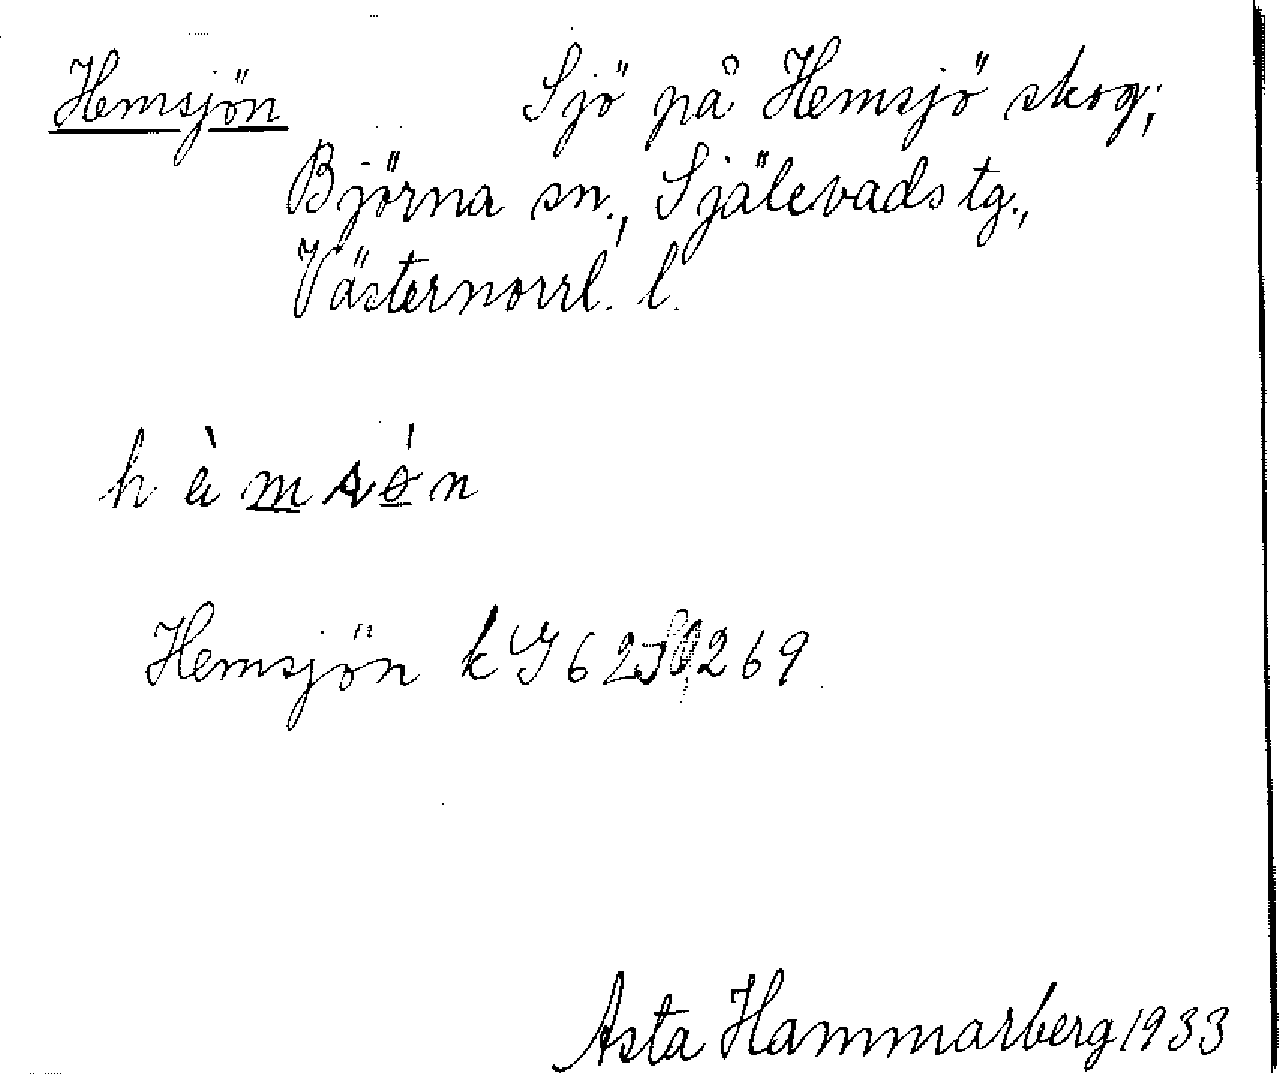 Hemsjön Sjö på Hemsjö skog;
Björna sn., Själevads tg.,
Västernorrl. l.
Hemsjön
Asta Hammarberg 1933